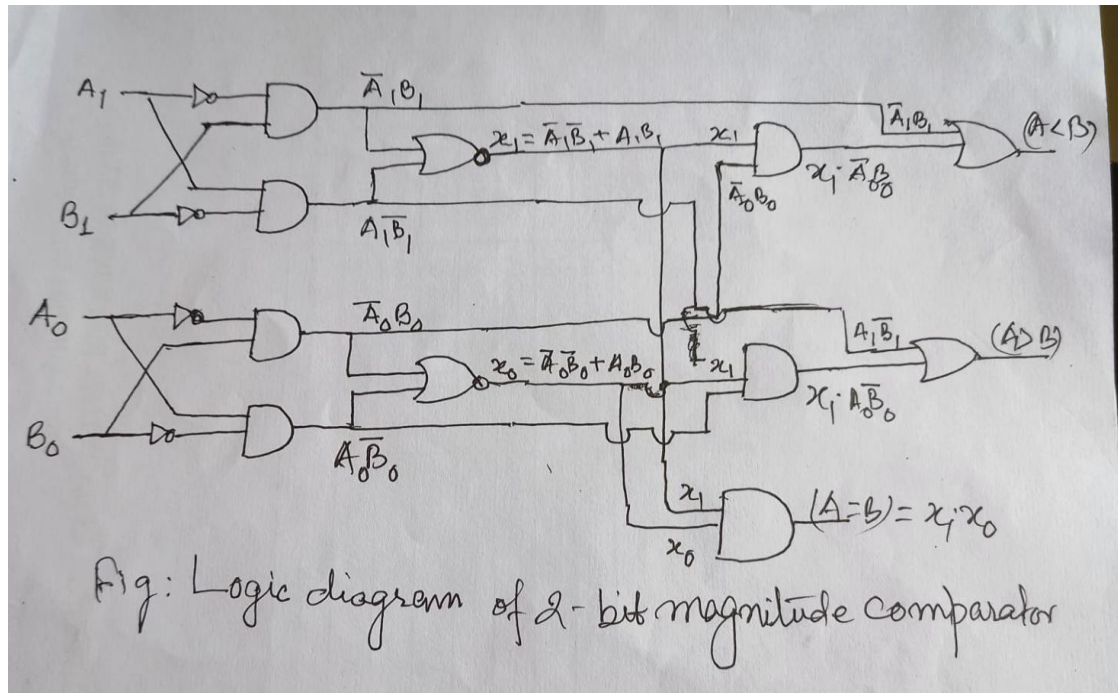 A₁
A̅₁B₁
x₁ = A̅₁B̅₁ + A₁B₁
x₁
A̅₁B₁
(A<B)
x₁·A̅₀B₀
A̅₀B₀
B₁
A₁B̅₁
A₀
A̅₀B₀
x₀ = A̅₀B̅₀ + A₀B₀
x₁
A₁B̅₁
(A>B)
x₁·A₀B̅₀
B₀
A₀B̅₀
x₁
x₀
(A=B) = x₁·x₀
Fig: Logic diagram of 2-bit magnitude comparator